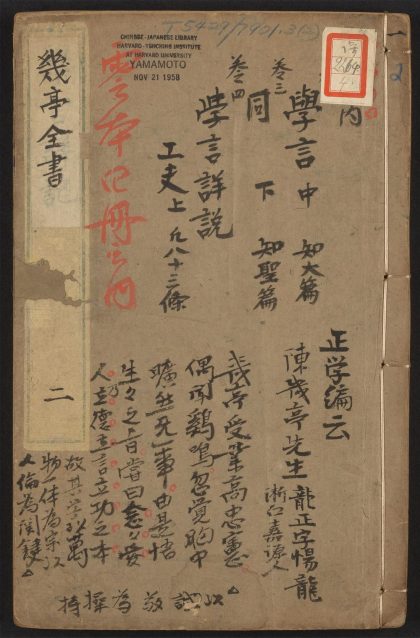 T5429/7921.3(2)
CHINESE-JAPANESE LIBRARY
HARVARD-YENCHING INSTITUTE
AT HARVARD UNIVERSITY
YAMAMOTO
NOV 21 1958
内
卷三
學言 中 知大篇
同 下 知聖篇
卷四
学言詳説
工夫上 凡八十三條
零本四冊之内
幾亭全書
二
正学編云
陳幾亭先生 龍正字惕龍
浙江嘉 人
幾亭受業高忠憲
偶聞鷄鳴忽覚胸中
曠然死一事由是悟
生々之旨嘗曰 愛
人乃立德立言立功之本
故其学以萬
物一体為宗以
人倫為関鍵
以 敬為操持